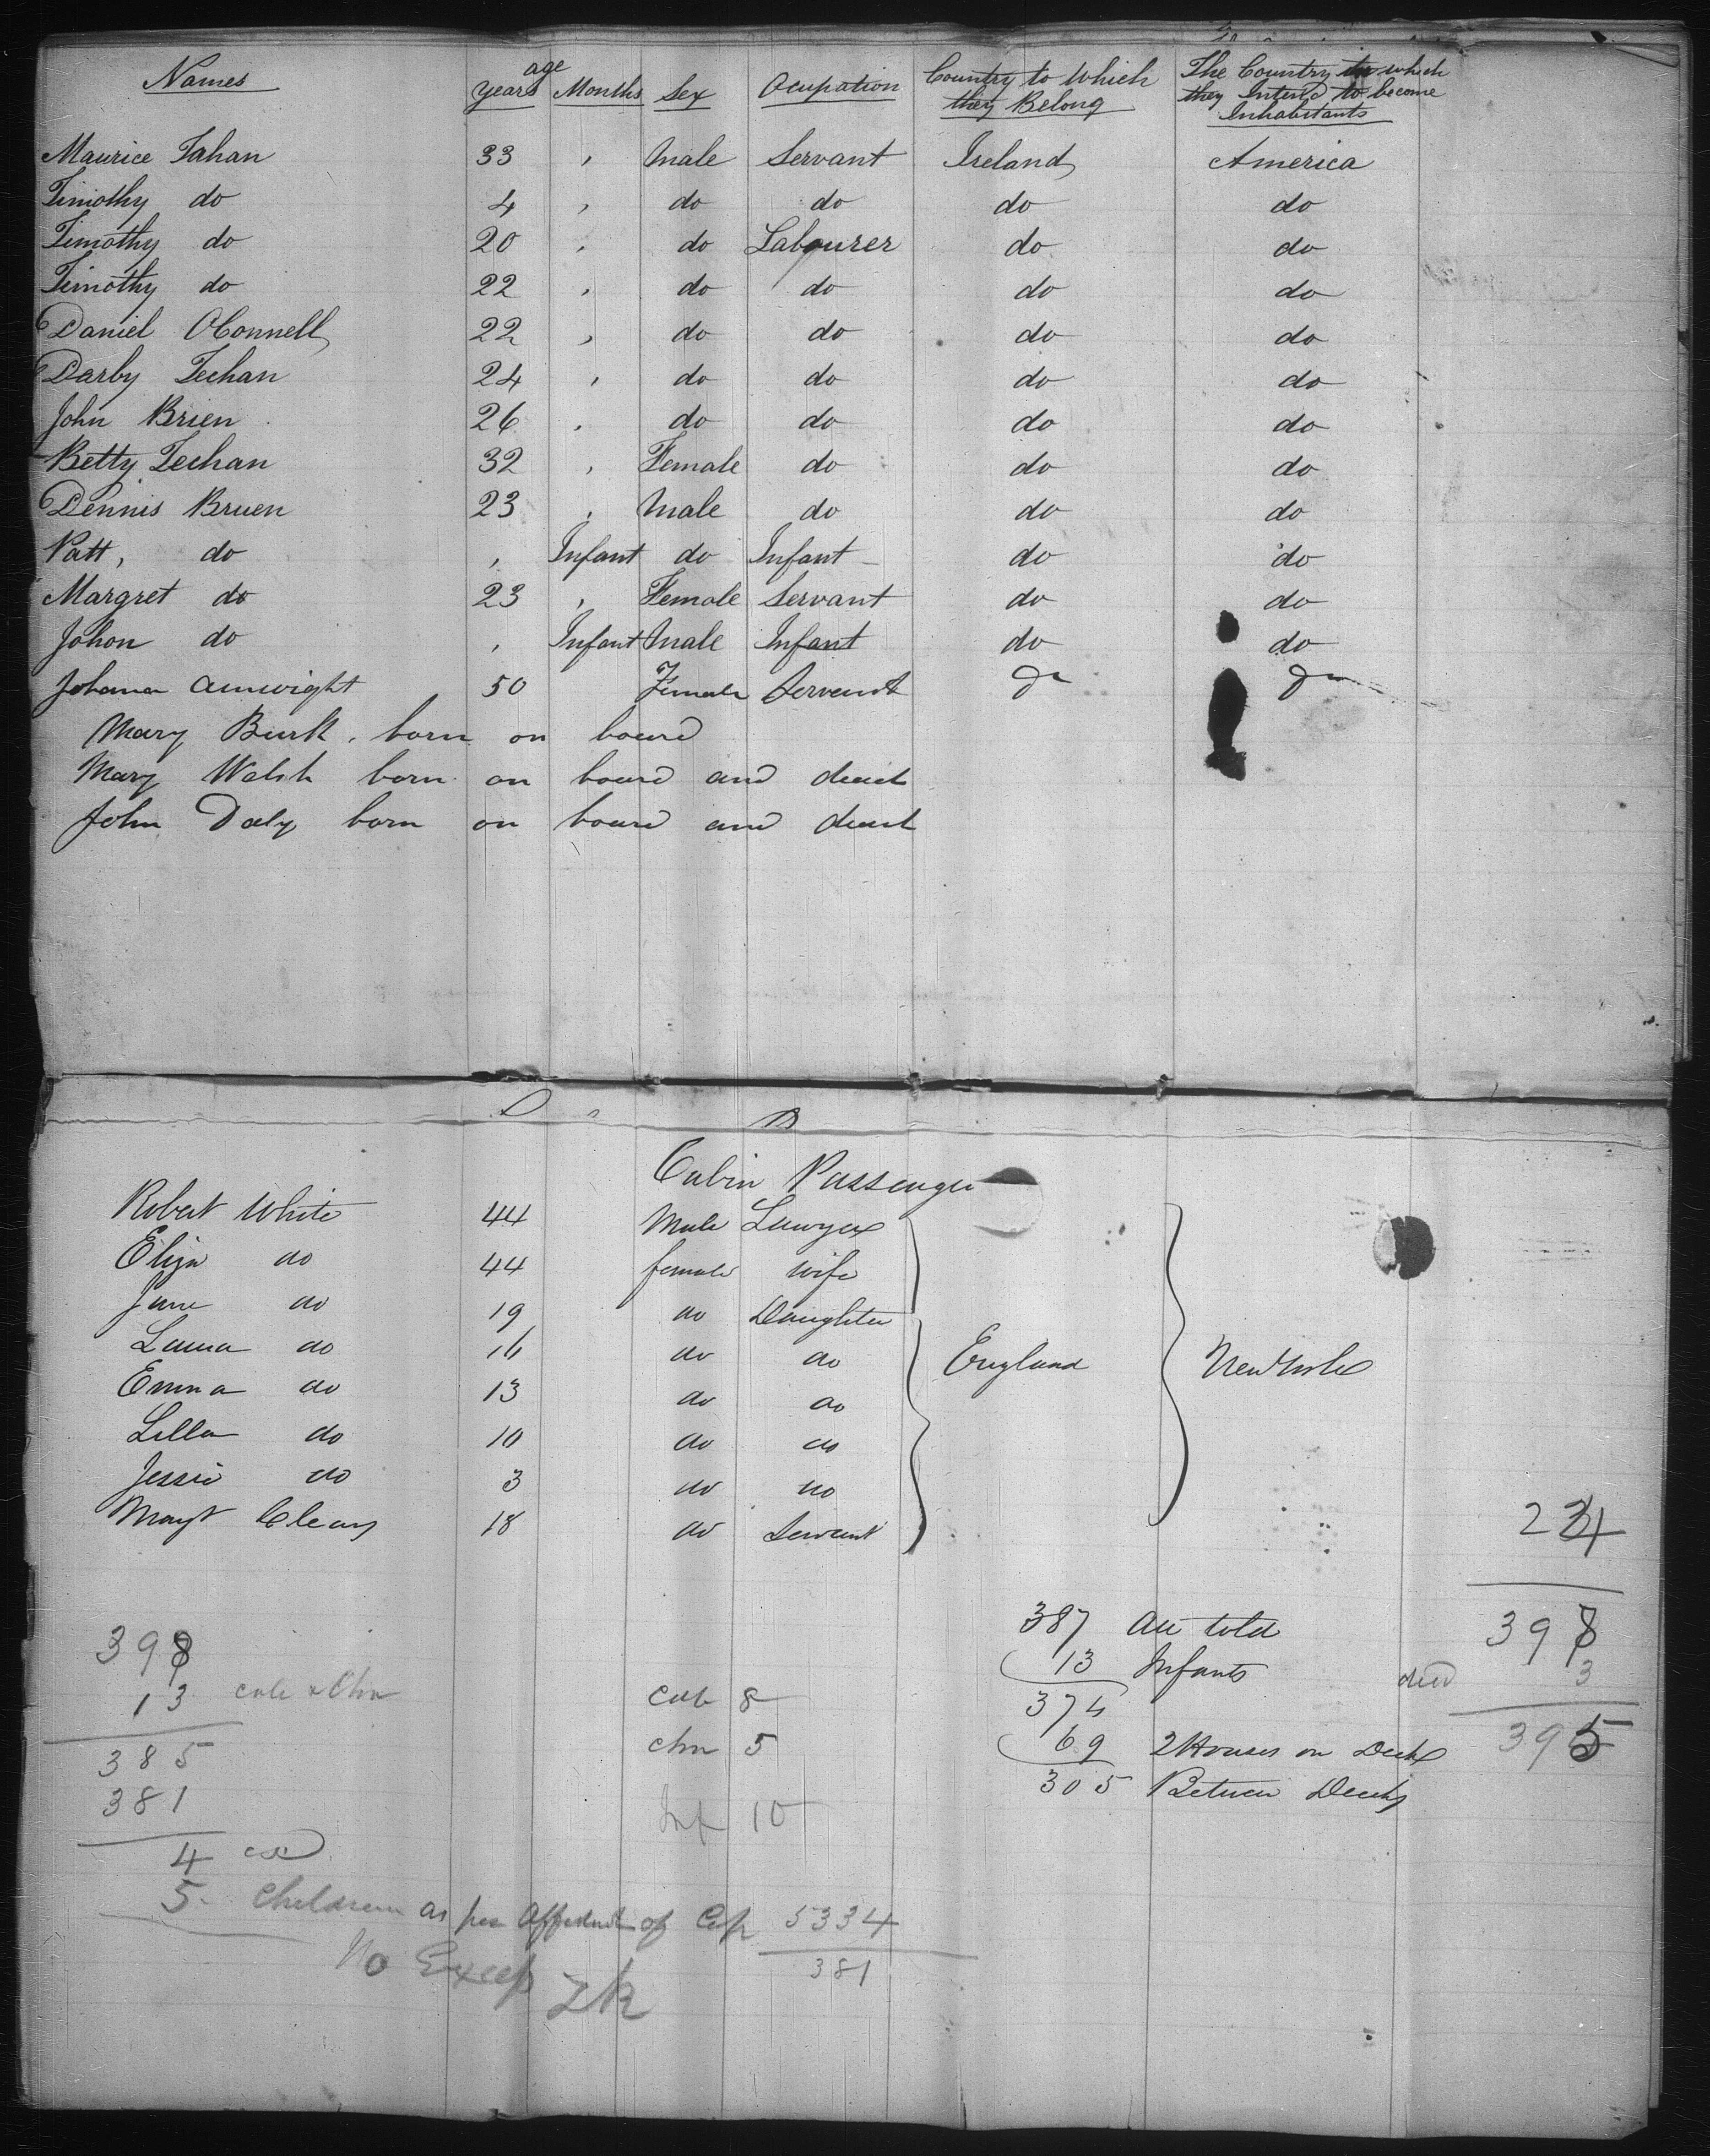 Names age years Months Sex Ocupation Country to Which they Belong The Country in which they Intend to become Inhabitants
Maurice Tahan 33 , Male Servant Ireland America
Timothy do 4 , do do do do
Timothy do 20 , do Labourer do do
Timothy do 22 , do do do do
Daniel OConnell 22 , do do do do
Darby Techan 24 , do do do do
John Brien 26 , do do do do
Betty Techan 32 , Female do do do
Dennis Bruen 23 , Male do do do
Patt, do , Infant do Infant do do
Margret do 23 , Female Servant do do
Johon do , Infant Male Infant do do
Johana 50 Female Servant do do
Mary Burk. born on board
Mary Walsh born on board and died
John Daly born on board and died
Cabin Passenger
Robert White 44 Male Lawyer
Eliza do 44 female wife
Jane do 19 do Daughter
Laura do 16 do do England New York
Emma do 13 do do
Lilla do 10 do do
Jessie do 3 do do
Margt Cleary 18 do Servant
234
387 All told
13 Infants
374
69 2 Houses on Deck
305 Between Decks
398
died 3
395
398
13 cab & Chn
385
381
4
5 Children as per Affidavit of Cap 5334
381
cab 8
chn 5
Inf 10
No Excep